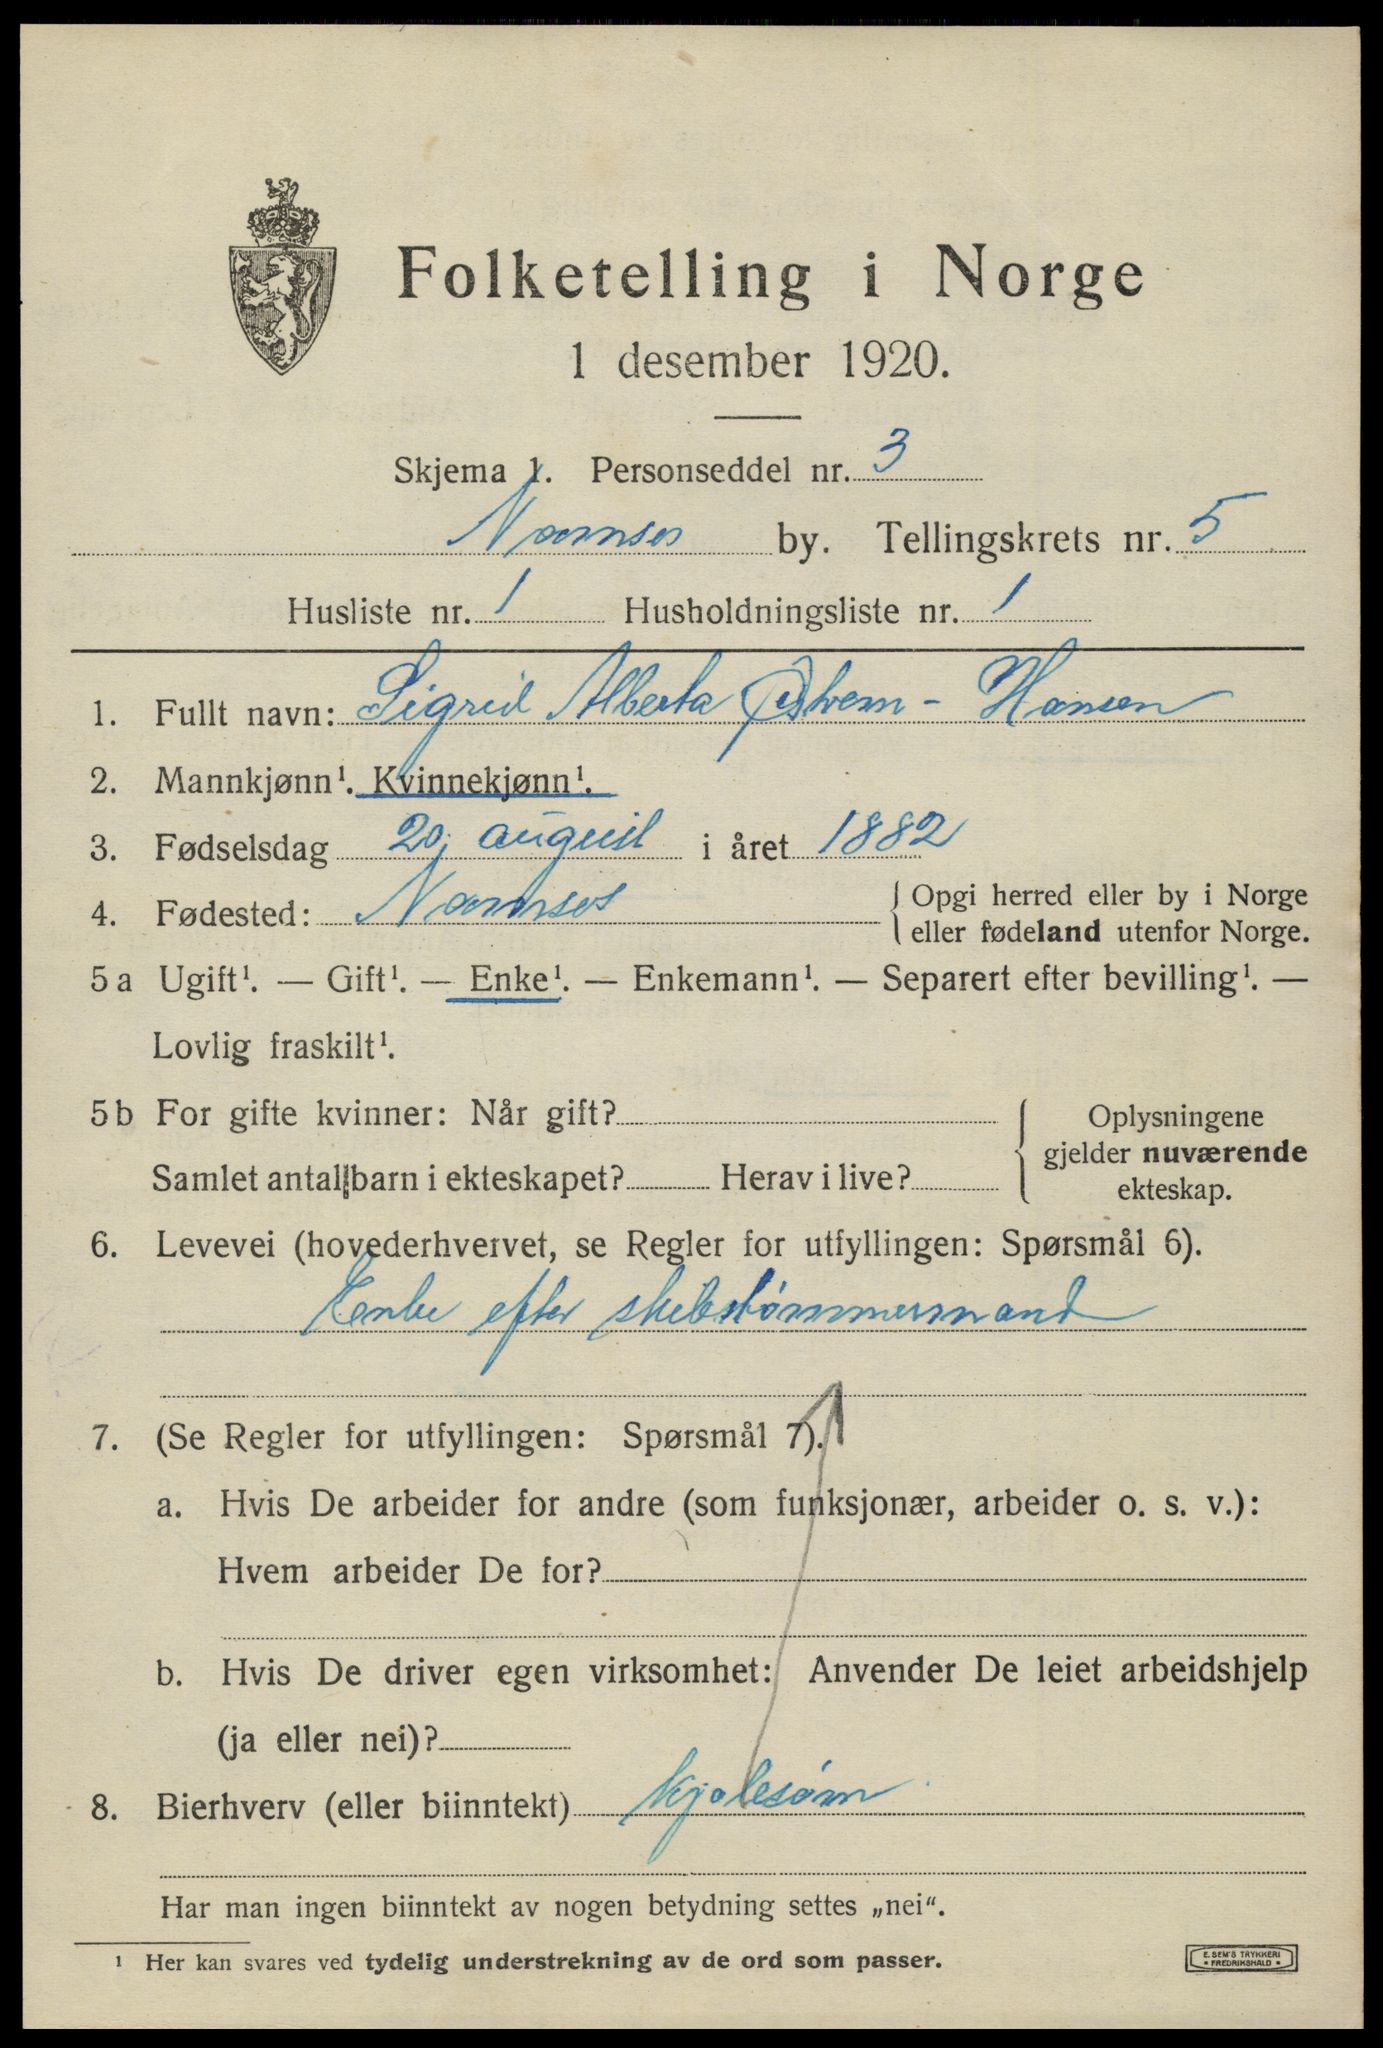 Folketelling i Norge
1 desember 1920.
Skjema 1. Personseddel nr. 3
Namsos by. Tellingskrets nr. 5
Husliste nr. 1 Husholdningsliste nr. 1
1. Fullt navn: Sigrid Alberta Østrem - Hansen
2. Mannkjønn¹. Kvinnekjønn¹.
3. Fødselsdag 20. august i året 1882
4. Fødested: Namsos { Opgi herred eller by i Norge
eller fødeland utenfor Norge.
5 a Ugift¹. — Gift¹. — Enke¹. — Enkemann¹. — Separert efter bevilling¹. —
Lovlig fraskilt¹.
5 b For gifte kvinner: Når gift?
Samlet antall barn i ekteskapet? Herav i live?
Oplysningene
gjelder nuværende
ekteskap.
6. Levevei (hovederhvervet, se Regler for utfyllingen: Spørsmål 6).
Enke efter skibstømmermand
7. (Se Regler for utfyllingen: Spørsmål 7).
a. Hvis De arbeider for andre (som funksjonær, arbeider o. s. v.):
Hvem arbeider De for?
b. Hvis De driver egen virksomhet: Anvender De leiet arbeidshjelp
(ja eller nei)?
8. Bierhverv (eller biinntekt) kjolesøm
Har man ingen biinntekt av nogen betydning settes „nei“.
¹ Her kan svares ved tydelig understrekning av de ord som passer.
E. SEM'S TRYKKERI
• FREDRIKSHALD •